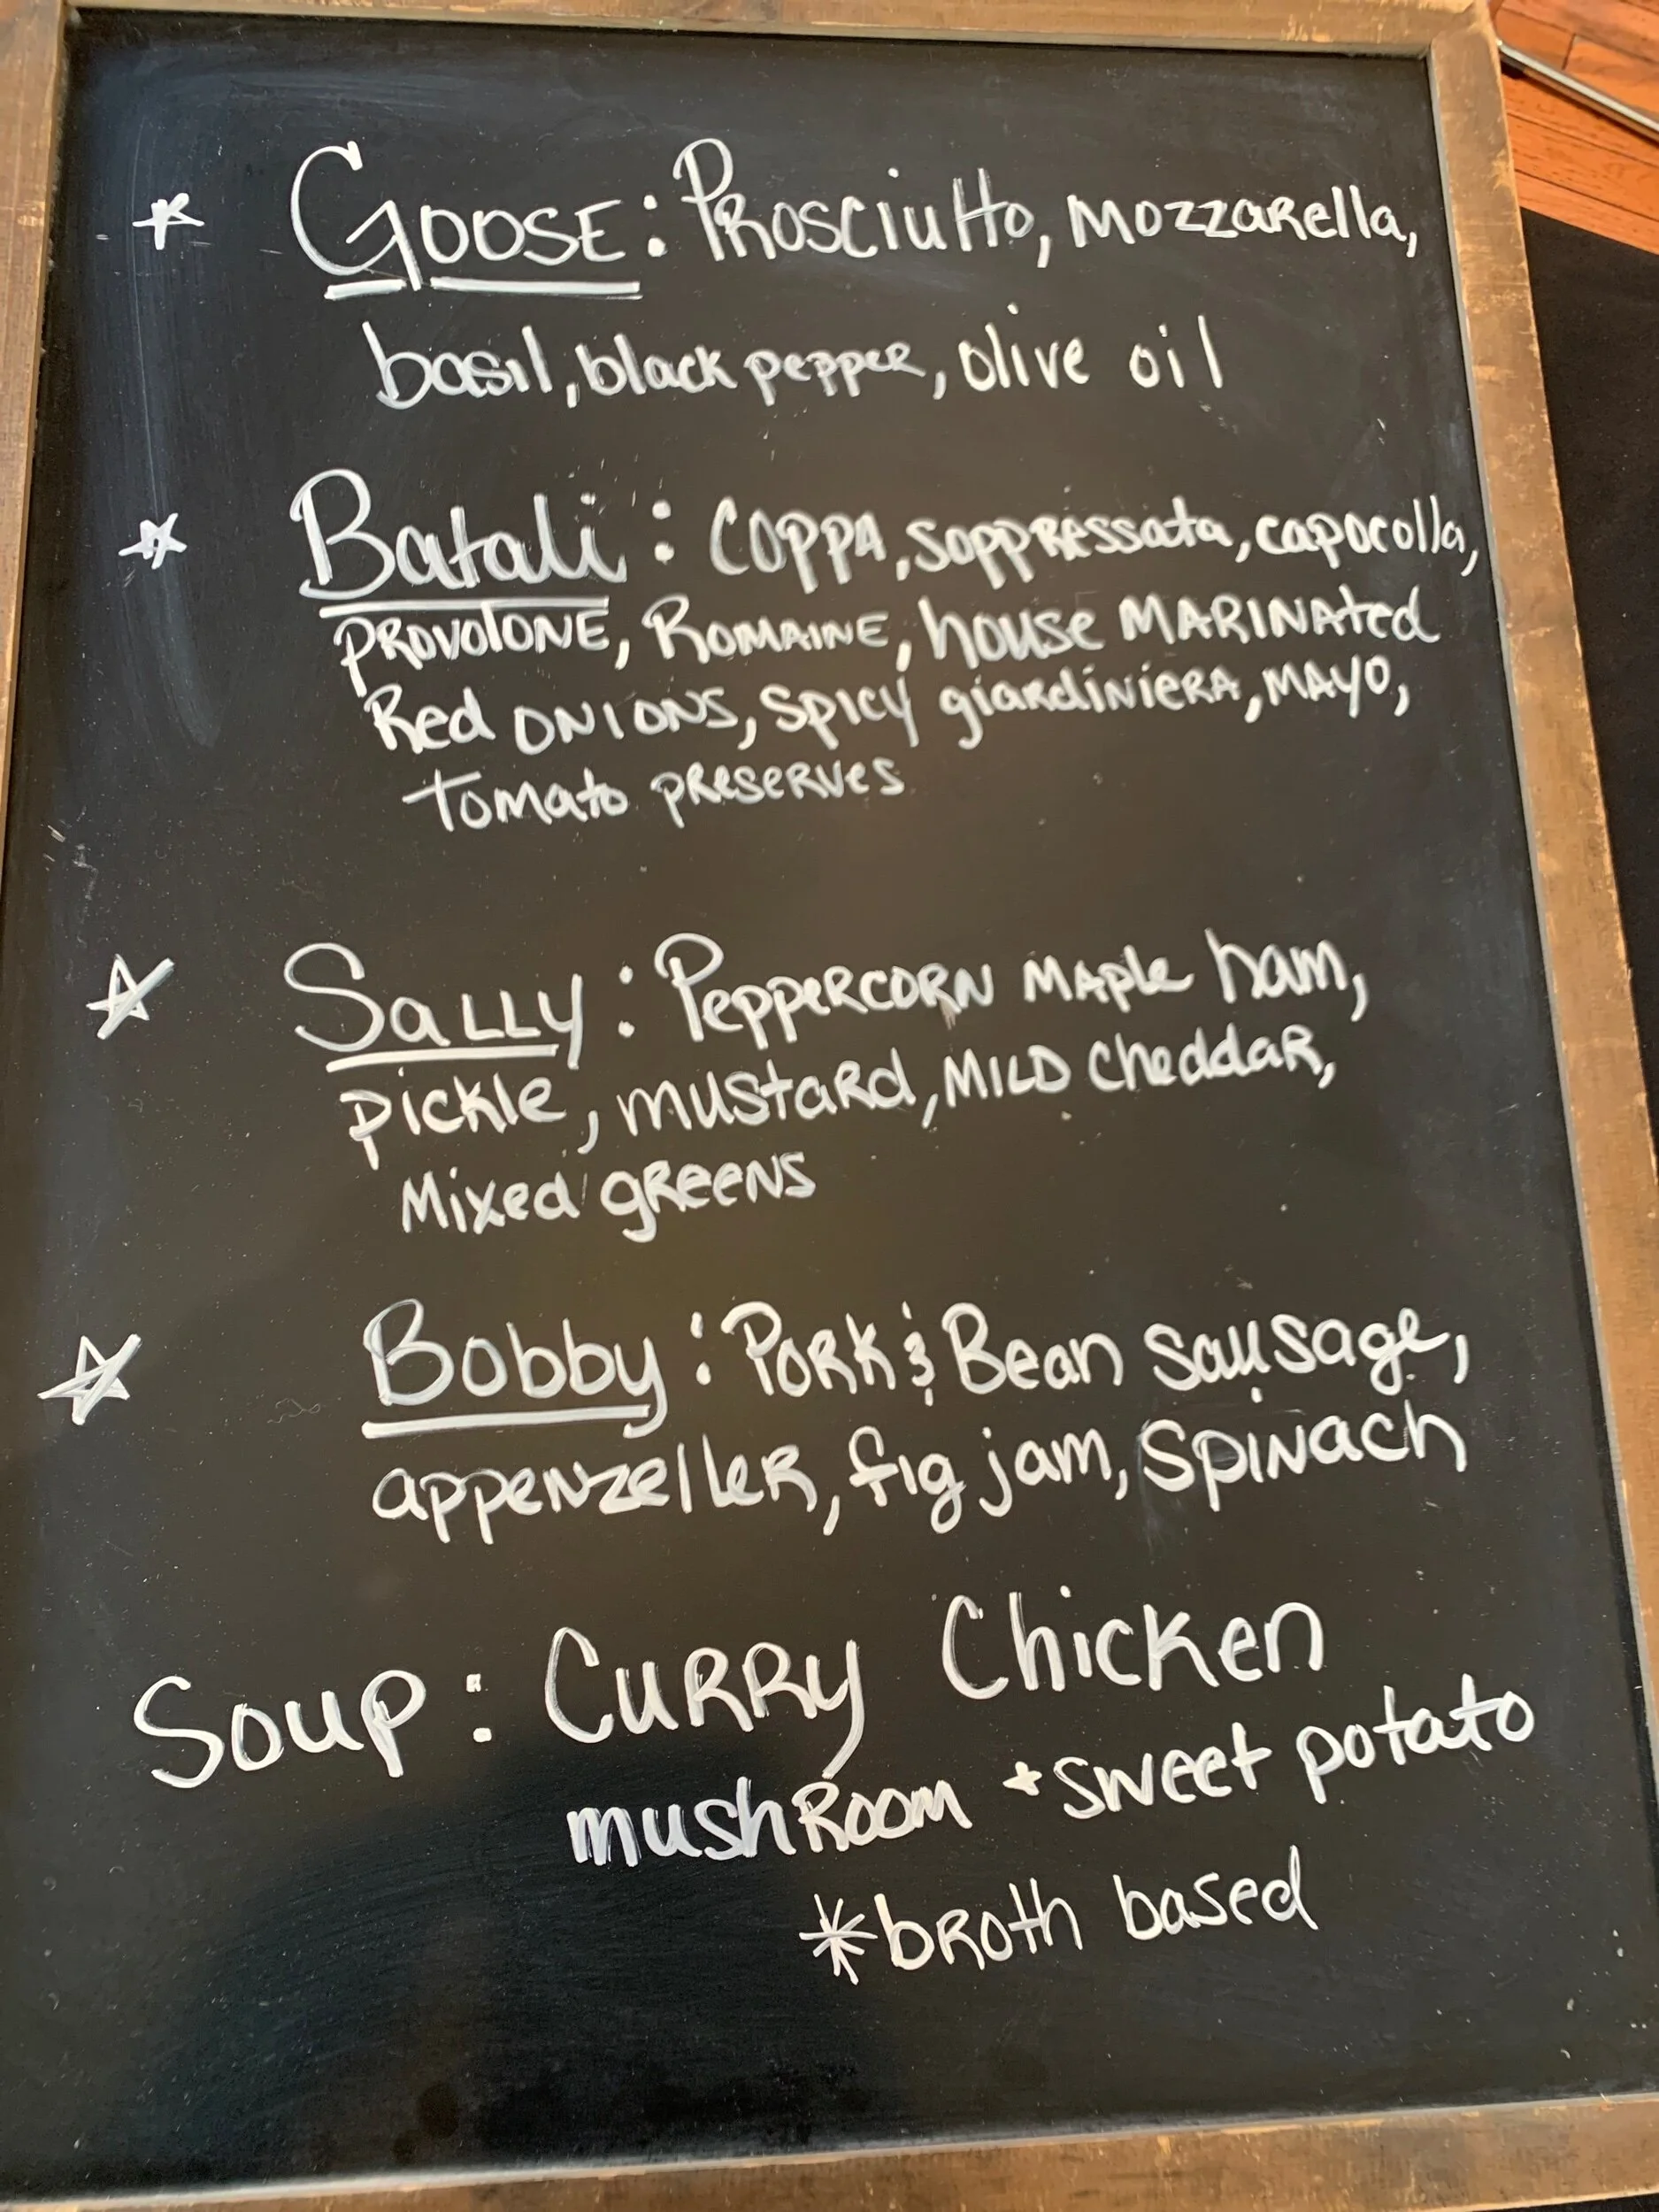 GOOSE: PROSCIUTTO, MOZZARella,
basil, black pepper, olive oil
Batali: COPPA, SOPPRESSata, capocolla,
PROVOLONE, ROMAINE, house MARINAted
Red ONIONS, SPICY giardiniERA, MAYO,
tomato PReSeRVeS
SaLLy: PeppeRCORN MAple ham,
pickle, mustaRd, MILD CheddaR,
Mixed gReeNS
Bobby: PORK & Bean Sausage,
appeNzelleR, fig jam, SpiNach
Soup: CuRRy Chicken
mushRoom + sweet potato
*bRoth based